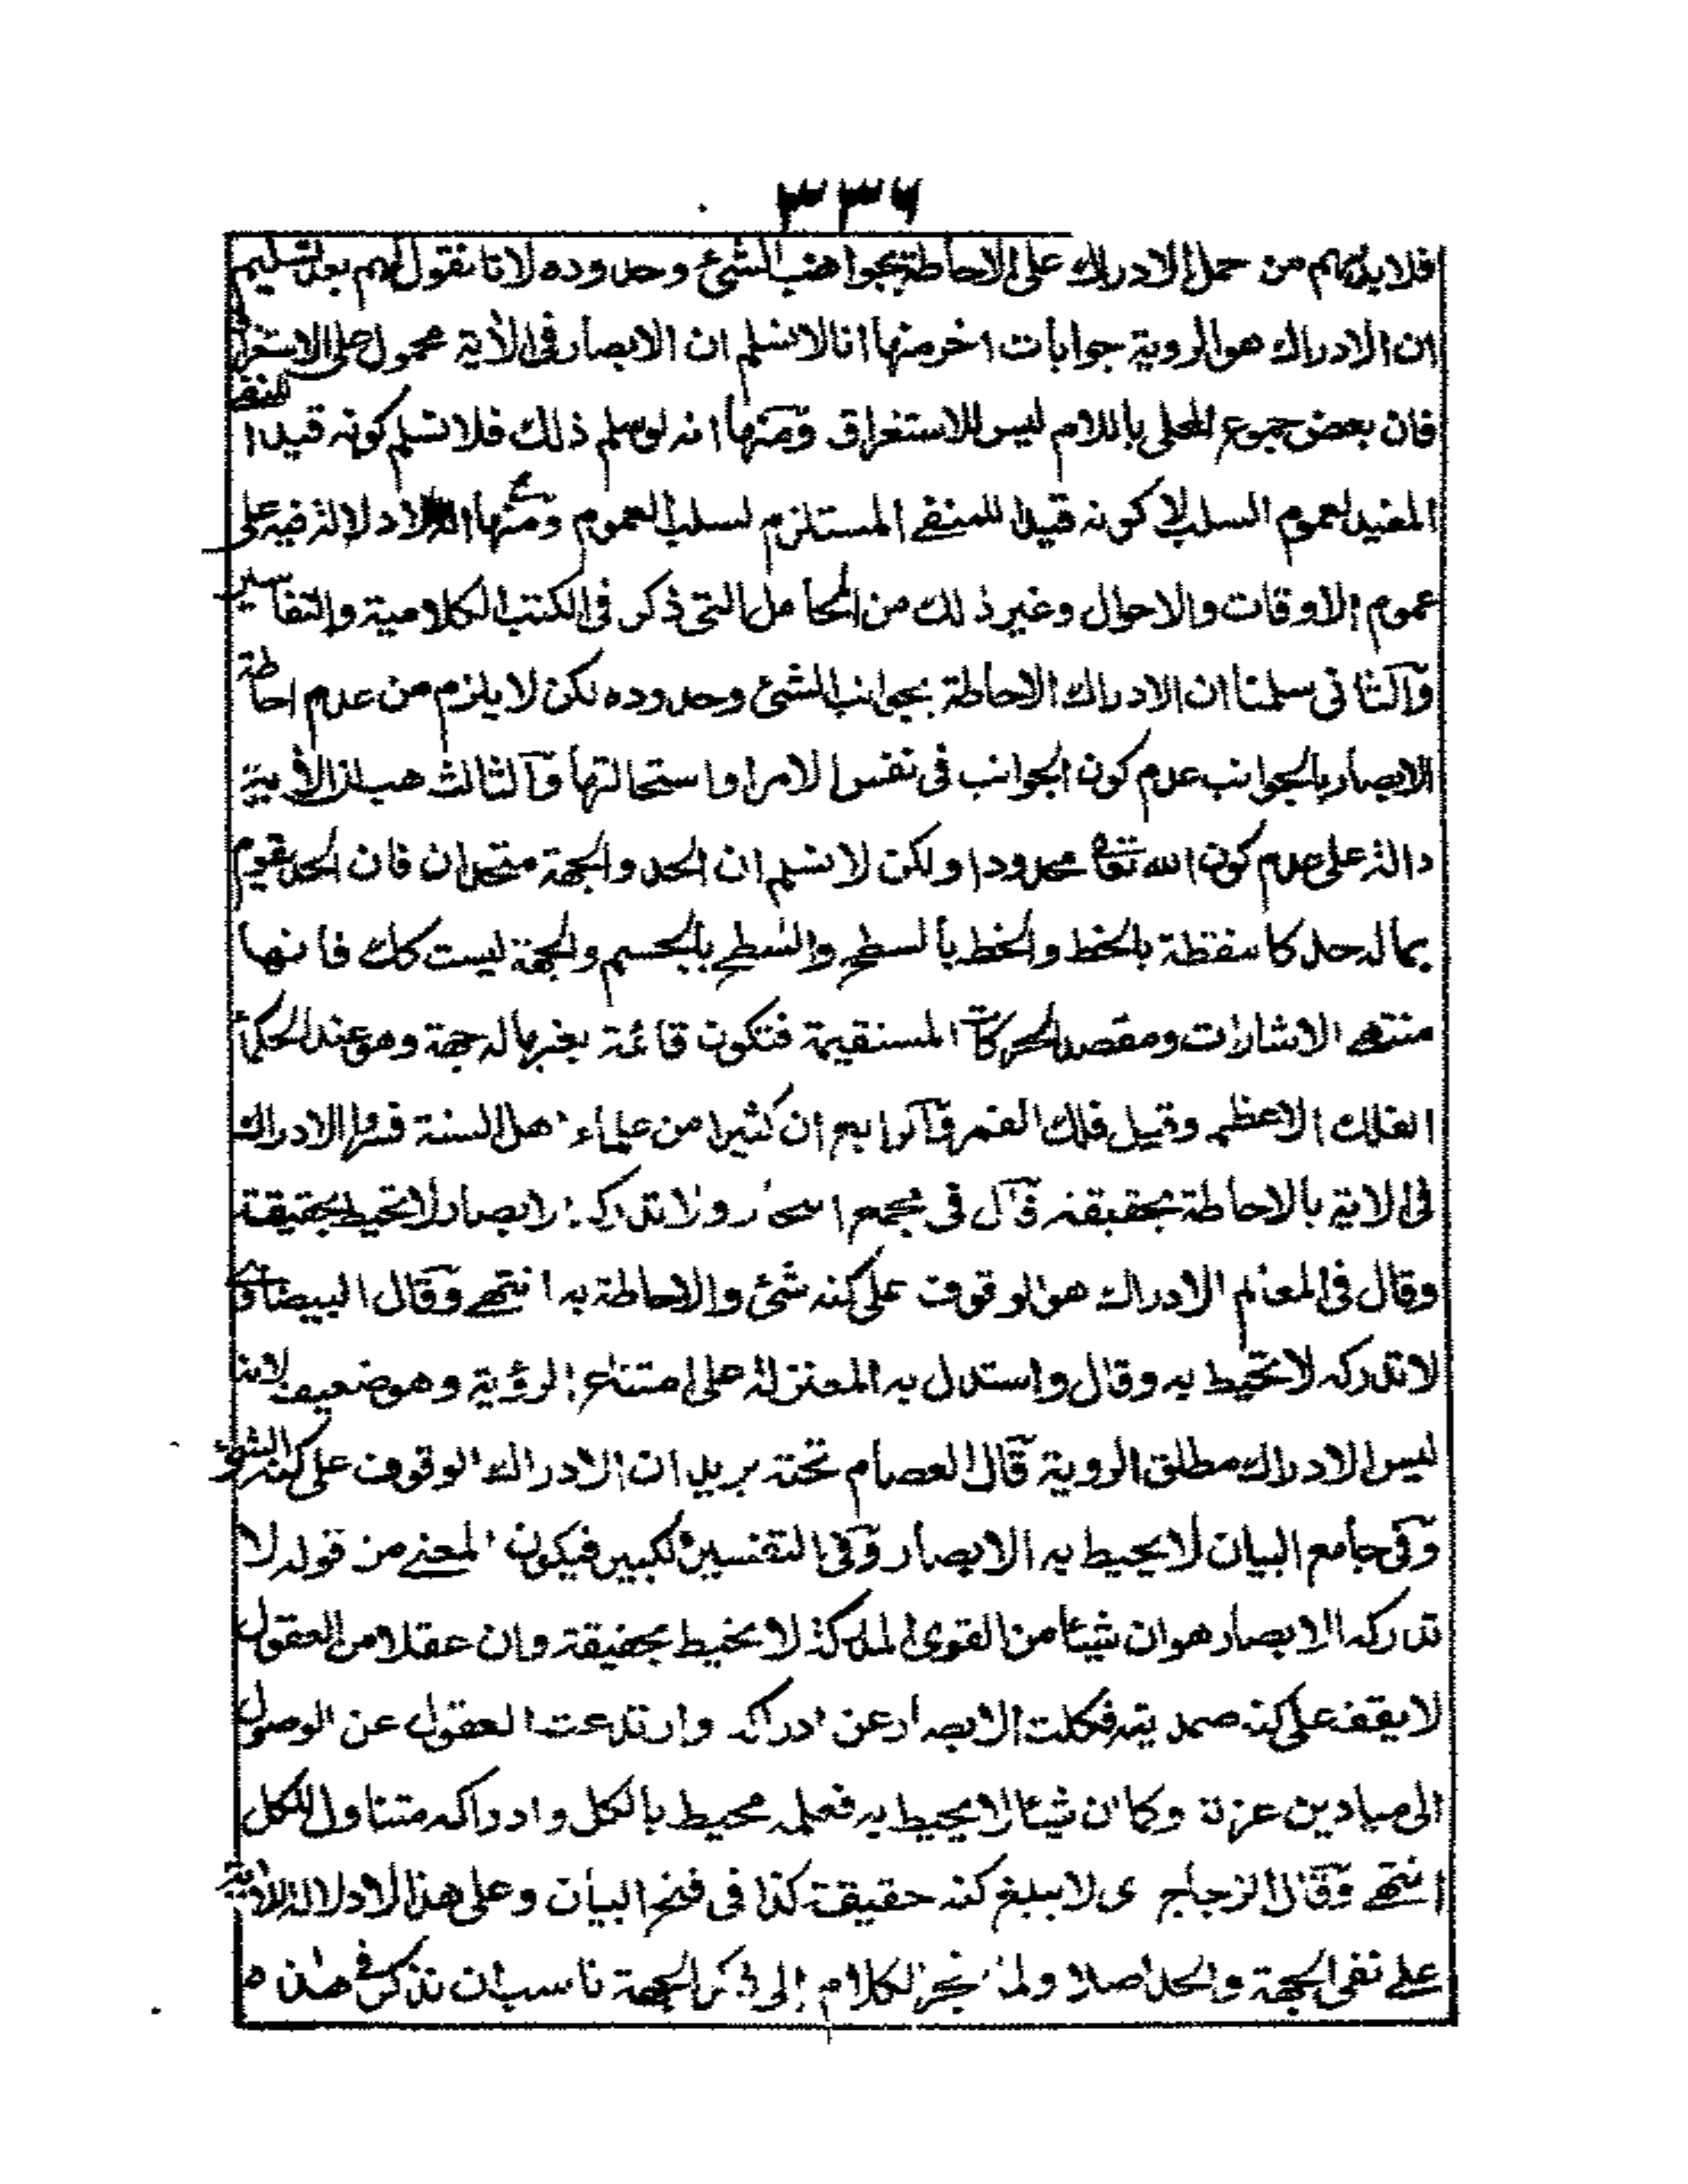 ٣٣٦
فلا بد لهم من حمل الادراك على الاحاطة بجوانب الشئ وحدوده لانا نقول لهم بعد تسليم
ان الادراك هو الروية جوابات اخر منها انا لا نسلم ان الابصار فى الأية محمول على الاستغراق
فان بعض جموع المحلى باللام ليس للاستغراق ومنها انه لو سلم ذلك فلا نسلم كونه قيدا للنفے
المفيد لعموم السلب لا كونه قيدا للمنفے المستلزم لسلب العموم ومنها انه لا دلالة فيه على
عموم الاوقات والاحوال وغير ذلك من المحامل التى ذكر فى الكتب الكلامية والتفاسير
والثانى سلمنا ان الادراك الاحاطة بجوانب الشئ وحدوده لكن لا يلزم من عدم احاطة
الابصار بالجوانب عدم كون الجوانب فى نفس الامر او استحالتها والثالث هب ان الأية
دالة على عدم كون الله تعالى محدودا ولكن لا نسلم ان الحد والجهة متحدان فان الحد يقوم
بماله حد كالنقطة بالخط والخط بالسطح والسطح بالجسم والجهة ليست كك فانها
منتهے الاشارات ومقصد الحركات المستقيمة فتكون قائمة بغير ماله جهة وهو عند الحكماء
الفلك الاعظم وقيل فلك القمر والرابع ان كثيرا من علماء اهل السنة فسروا الادراك
فى الاية بالاحاطة بحقيقته قال فى مجمع البحار ولا تدركه الابصار لا تحيط بحقيقة
وقال فى المعالم الادراك هو الوقوف على كنه شئ والاحاطة به انتهے وقال البيضاوى
لا تدركه لا تحيط به وقال واستدل به المعتزلة على امتناع الرؤية وهو ضعيف لانه
ليس الادراك مطلق الروية قال العصام تحته يريد ان الادراك الوقوف على كنه الشئ
وفى جامع البيان لا يحيط به الابصار وفى التفسير الكبير فيكون المعنے من قوله لا
تدركه الابصار هو ان شيئا من القوى المدركة لا يحيط بحقيقة وان عقلا من العقول
لا يقف على كنه صمديته فكلت الابصار عن ادراكه وارتدعت العقول عن الوصول
الى ميادين عزته وكما ان شيئا لا يحيط به فعلمه محيط بالكل وادراكه متناول للكل
انتهے وقال الزجاج اى لا يبلغ كنه حقيقة كذا فى فتح البيان وعلى هذا لا دلالة للاية
على نفى الجهة والحد اصلا ولما انجر الكلام الى ذكر الجهة ناسب ان نذكر فى هذه